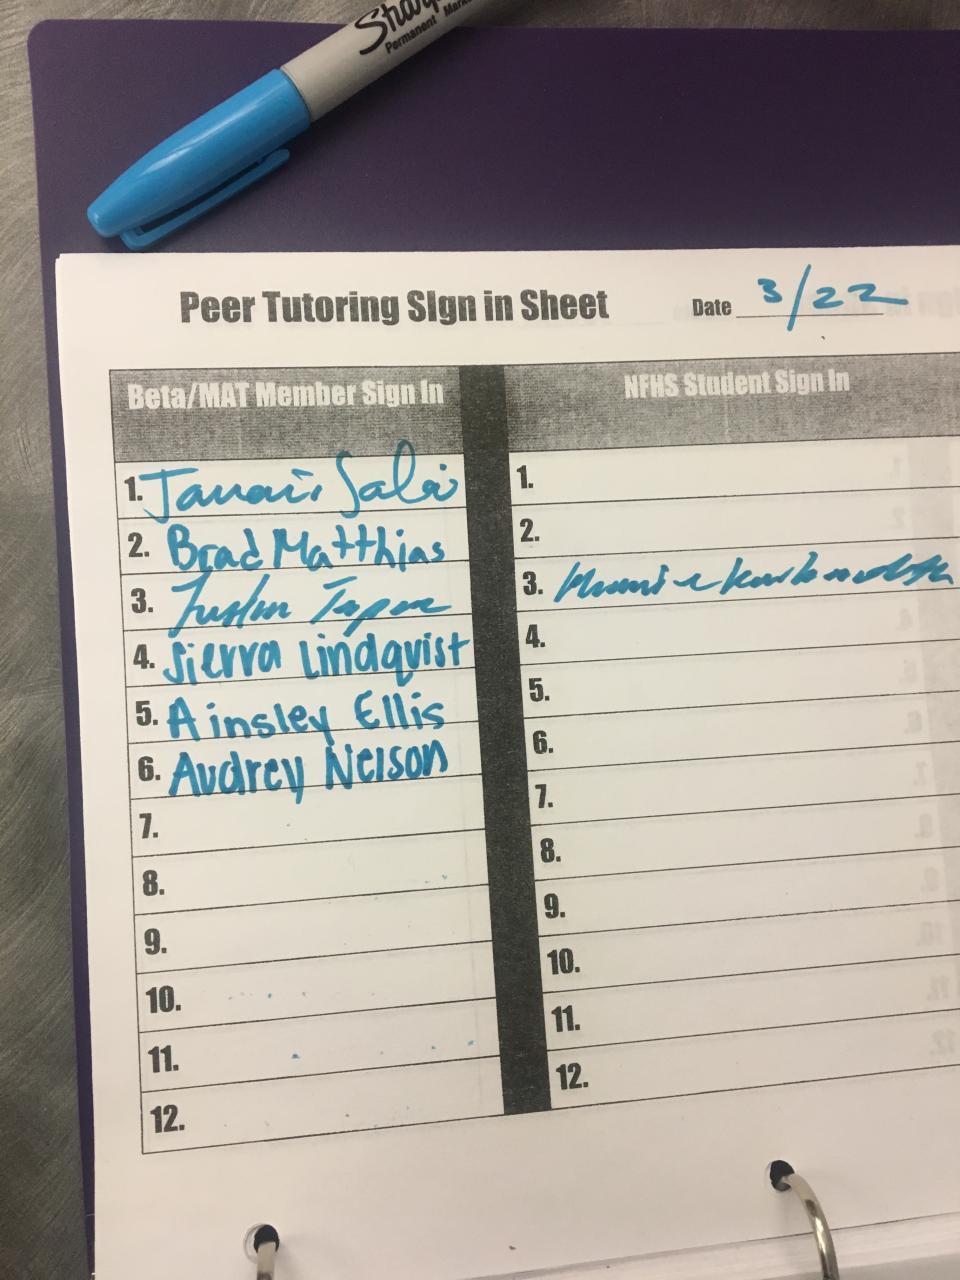 Sharpie
Permanent Marker
Peer Tutoring SIgn in Sheet
Date 3/22
Beta/MAT Member Sign In
NFHS Student Sign In
1.
1.
2. Brad Matthias
2.
3. Justin
3.
4. Sierra Lindqvist
4.
5. Ainsley Ellis
5.
6. Audrey Nelson
6.
7.
7.
8.
8.
9.
9.
10.
10.
11.
11.
12.
12.